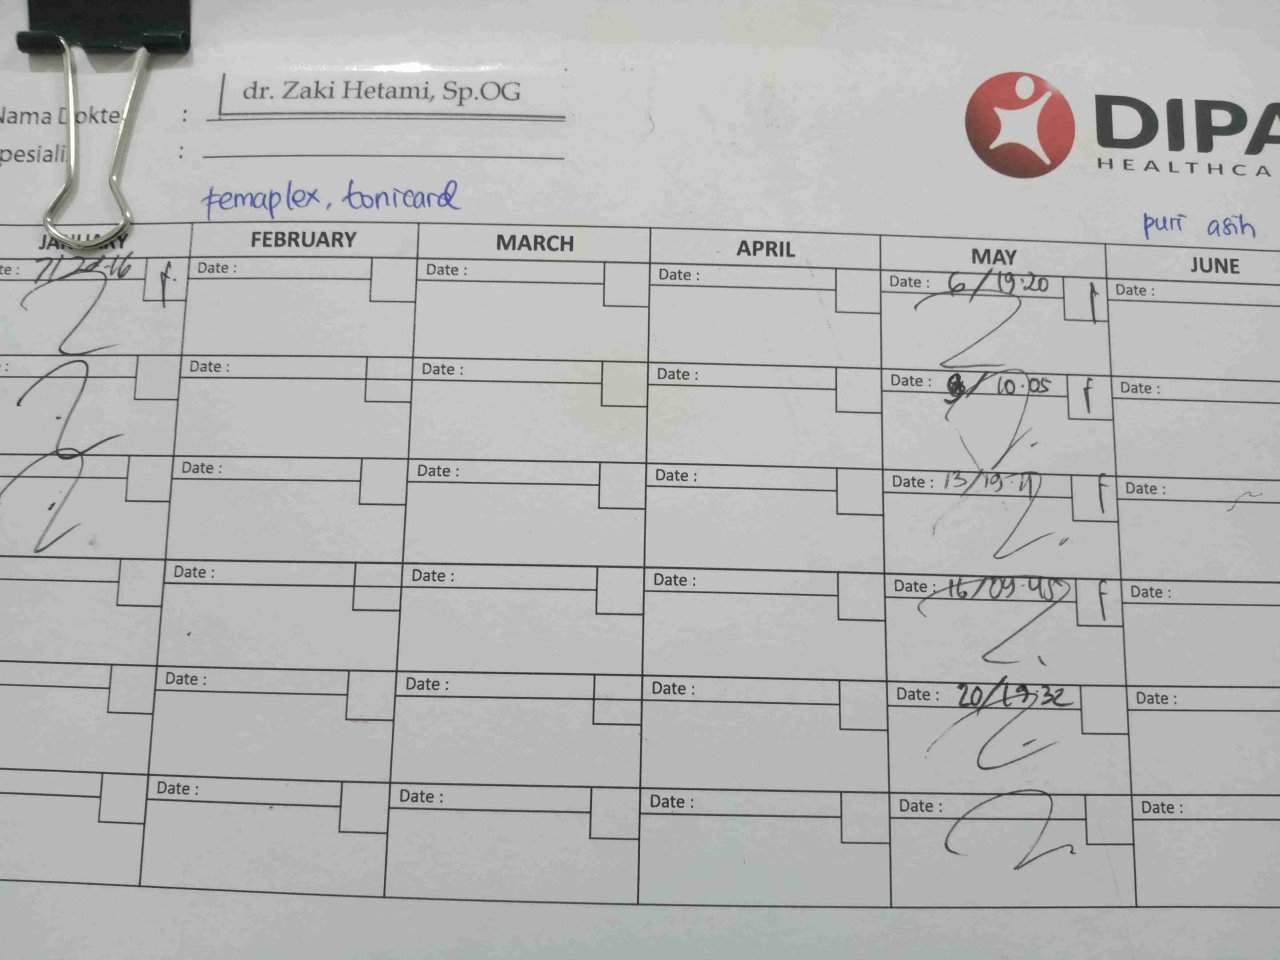 dr. Zaki Hetami, Sp.OG
Nama Dokte :
pesiali :
DIPA
HEALTHCA
femaplex, tonicard
puri asih
JANUARY FEBRUARY MARCH APRIL MAY JUNE
te: Date : Date : Date : Date : 6/19.20 f Date :
: Date : Date : Date : Date : 9/10.05 f Date :
Date : Date : Date : Date : 13/19. f Date :
Date : Date : Date : Date : 16/09.45 f Date :
Date : Date : Date : Date : 20/19.32 Date :
Date : Date : Date : Date : Date :